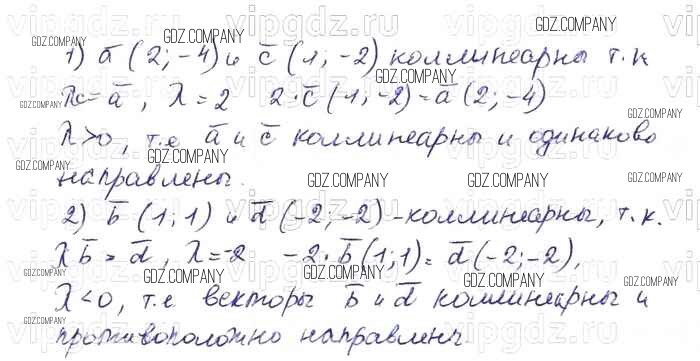 1) a̅ (2; -4) и c̅ (1; -2) коллинеарны т.к
λc̅ = a̅, λ = 2 2·c̅ (1; -2) = a̅ (2; -4)
λ>0, т.е a̅ и c̅ коллинеарны и одинаково
направлены.
2) b̅ (1; 1) и d̅ (-2; -2) - коллинеарны, т.к.
λb̅ = d̅, λ = -2 -2·b̅ (1; 1) = d̅ (-2; -2),
λ<0, т.е векторы b̅ и d̅ коллинеарны и
противоположно направлены.